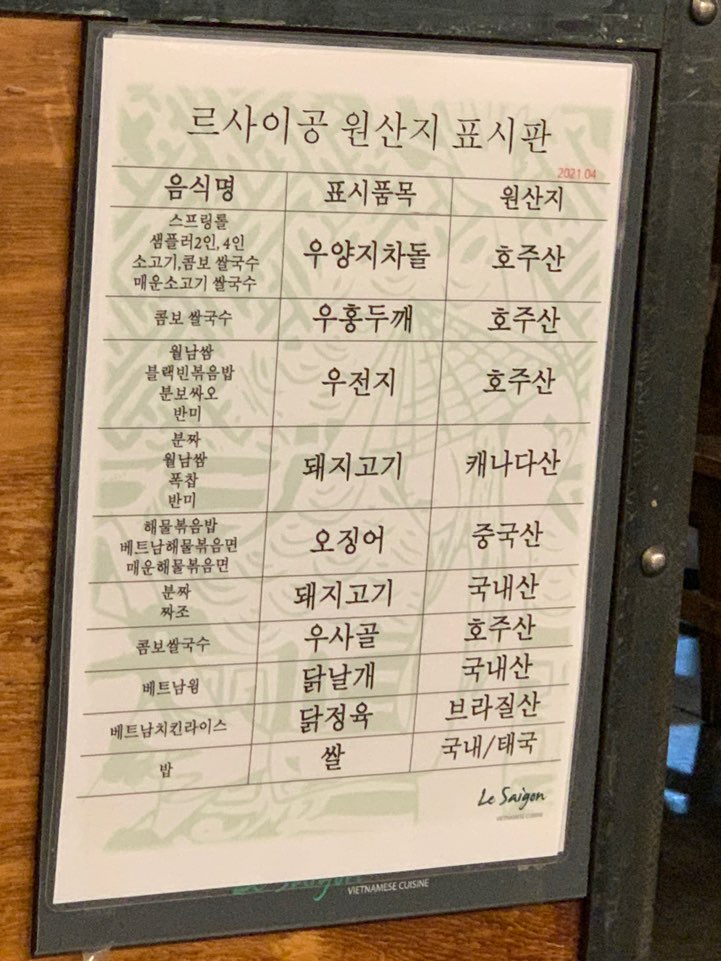 르사이공 원산지 표시판
2021.04
음식명 표시품목 원산지
스프링롤
샘플러2인, 4인
소고기,콤보 쌀국수
매운소고기 쌀국수
우양지차돌 호주산
콤보 쌀국수 우홍두깨 호주산
월남쌈
블랙빈볶음밥
분보싸오
반미
우전지 호주산
분짜
월남쌈
폭찹
반미
돼지고기 캐나다산
해물볶음밥
베트남해물볶음면
매운해물볶음면
오징어 중국산
분짜
짜조
돼지고기 국내산
콤보쌀국수 우사골 호주산
베트남윙 닭날개 국내산
베트남치킨라이스 닭정육 브라질산
밥 쌀 국내/태국
Le Saigon
VIETNAMESE CUISINE
Le Saigon
VIETNAMESE CUISINE